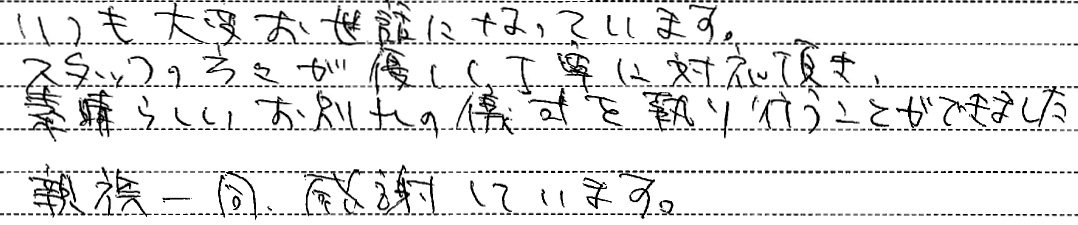 いつも大変お世話になっています。
スタッフの方々が優しく丁寧に対応頂き、
素晴らしいお別れの儀式を執り行うことができました
親族一同、感謝しています。